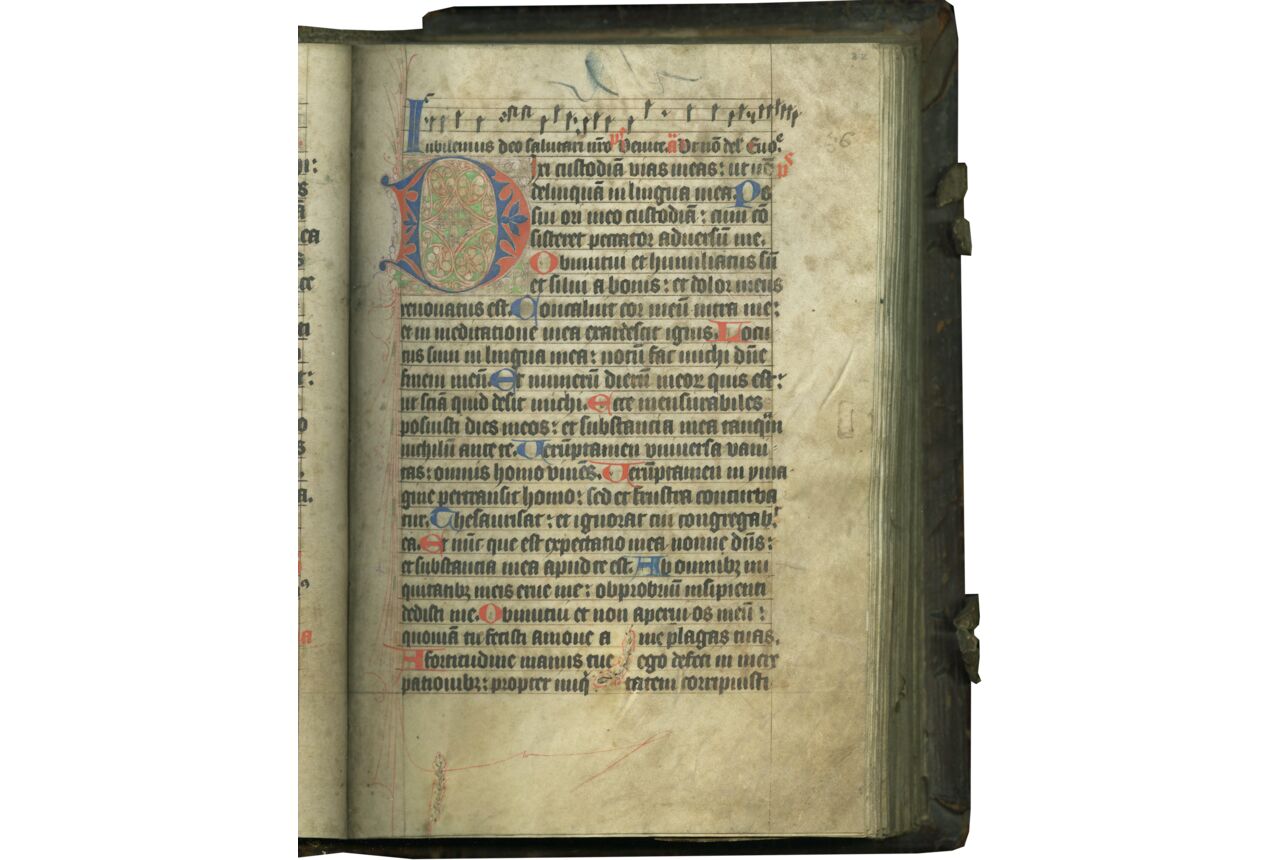 Iubilemus deo salutari nr̄o ps̄ Venite. ā Ut nō del' Euoe
Dixi custodiā vias meas: ut nō ps
delinquā in lingua mea. Po
sui ori meo custodiā: cum cō
sisteret peccator adversū me.
Obmutui et humiliatus sū
et silui a bonis: et dolor meus
renovatus est. Concaluit cor meū intra me:
et in meditatione mea exardescit ignis. Locu
tus sum in lingua mea: notū fac michi dn̄e
finem meū. Et numerū dierū meoꝝ quis est:
ut sciā quid desit michi. Ecce mensurabiles
posuisti dies meos: et substancia mea tanq̄m
nichilū ante te. Verūptamen universa vani
tas: omnis homo vivēs. Verūptamen in yma
gine pertransit homo: sed et frustra conturba
tur. Thesaurisat: et ignorat cui congregabit
ea. Et nūc que est expectatio mea nonne dn̄s:
et substancia mea apud te est. Ab omnibꝫ ini
quitatibꝫ meis erue me: obprobriū insipienti
dedisti me. Obmutui et non aperui os meū:
quoniā tu fecisti amove a me plagas tuas.
A fortitudine manus tue ego defeci in incre
pationibꝫ: propter iniq̄ tatem corripuisti